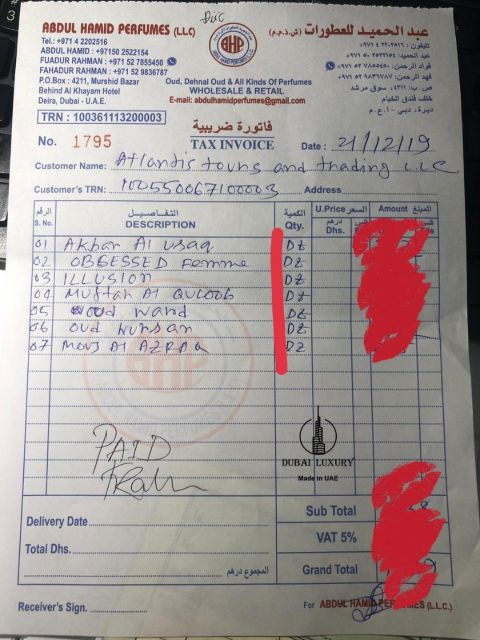 ABDUL HAMID PERFUMES (L.L.C)
Tel.: +971 4 2202516
ABDUL HAMID : +97150 2522154
FUADUR RAHMAN : +971 52 7855450
FAHADUR RAHMAN : +971 52 9836787
P.O.Box : 4211, Murshid Bazar
Behind Al Khayam Hotel
Deira, Dubai - U.A.E.
AHP
عبد الحميد للعطورات (ش.ذ.م.م)
تليفون: ٢٢٠٢٥١٦ ٤ ٩٧١+
عبد الحميد: ٢٥٢٢١٥٤ ٥٠ ٩٧١+
فواد الرحمن: ٧٨٥٥٤٥٠ ٥٢ ٩٧١+
فهد الرحمن: ٩٨٣٦٧٨٧ ٥٢ ٩٧١+
ص.ب: ٤٢١١، سوق مرشد
خلف فندق الخيام
ديرة، دبي - ا.ع.م
Oud, Dehnal Oud & All Kinds Of Perfumes
WHOLESALE & RETAIL
E-mail: abdulhamidperfumes@gmail.com
TRN : 100361113200003
فاتورة ضريبية
No. 1795
TAX INVOICE
Date : 21/12/19
Customer Name: Atlantis tours and trading L.L.C
Customer's TRN: 100550067100003 Address
الرقم التفاصيل الكمية السعر U.Price المبلغ Amount
S.No. DESCRIPTION Qty. درهم Dhs.
01 Akbar Al usaq DZ
02 OBSESSED Femme DZ
03 ILLUSION DZ
04 Muftah Al QULOOB DZ
05 oud wand DZ
06 oud DZ
07 Mouj Al AZRAQ DZ
PAID
DUBAI LUXURY
Made in UAE
Sub Total
Delivery Date
VAT 5%
Total Dhs.
المجموع درهم
Grand Total
Receiver's Sign.
For ABDUL HAMID PERFUMES (L.L.C.)